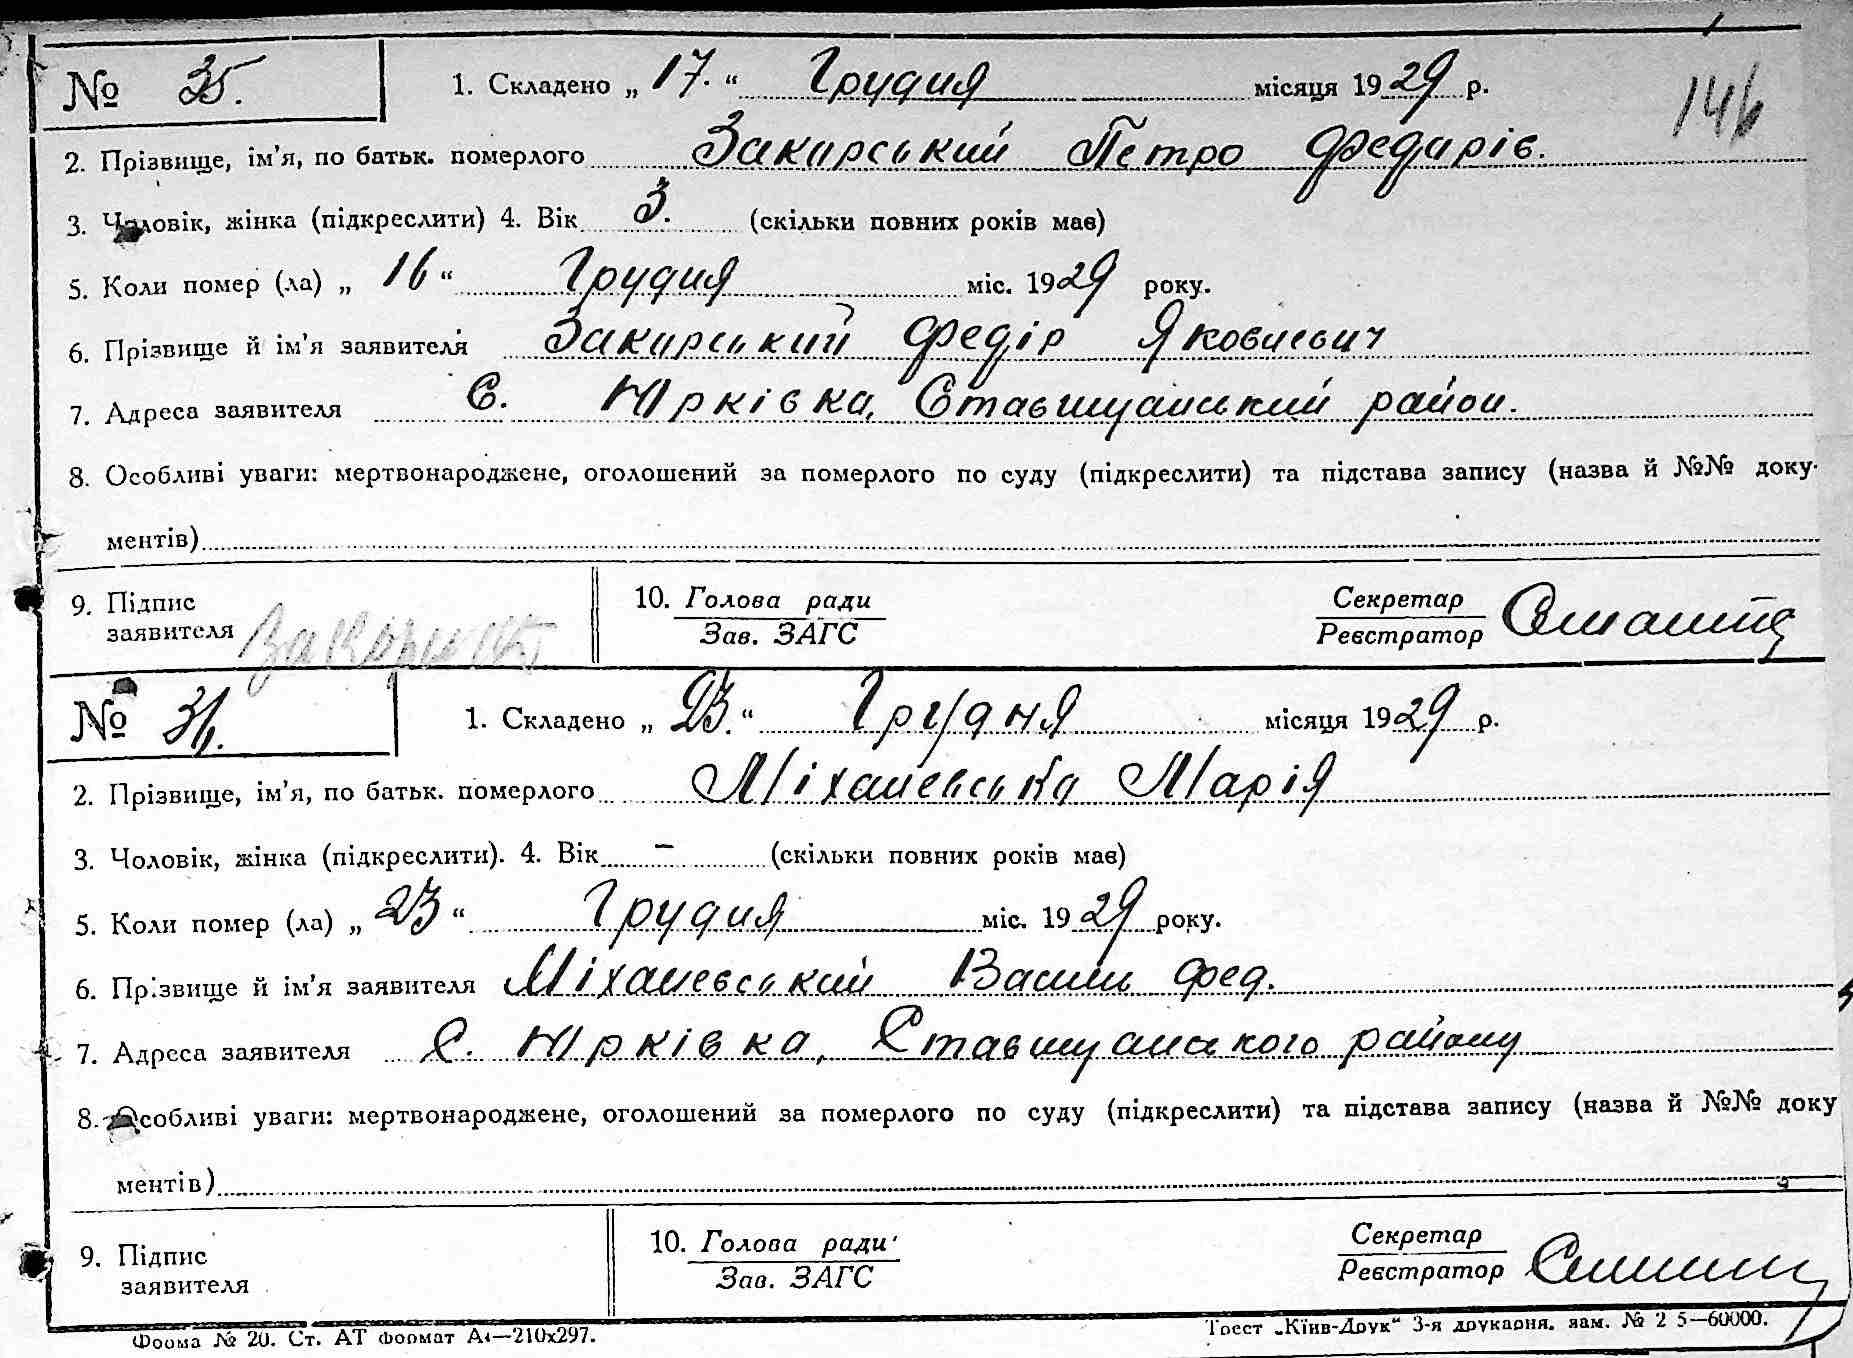 № 35. 1. Складено „ 17. “ Грудня місяця 1929 р.
146
2. Прізвище, ім’я, по батьк. померлого Закарський Петро Федарів.
3. Чоловік, жінка (підкреслити) 4. Вік 3. (скільки повних років має)
5. Коли помер (ла) „ 16 “ Грудня міс. 1929 року.
6. Прізвище й ім’я заявителя Закарський Федір Яковлевич
7. Адреса заявителя С. Юрківка, Ставищанський район.
8. Особливі уваги: мертвонароджене, оголошений за померлого по суду (підкреслити) та підстава запису (назва й №№ доку-
ментів)
9. Підпис заявителя 10. Голова ради Зав. ЗАГС Секретар Реєстратор
№ 36. 1. Складено „ 23. “ Грудня місяця 1929 р.
2. Прізвище, ім’я, по батьк. померлого Міхалевська Марія
3. Чоловік, жінка (підкреслити). 4. Вік – (скільки повних років має)
5. Коли помер (ла) „ 23 “ Грудня міс. 1929 року.
6. Прізвище й ім’я заявителя Міхалевський Василь Фед.
7. Адреса заявителя С. Юрківка, Ставищанского району
8. Особливі уваги: мертвонароджене, оголошений за померлого по суду (підкреслити) та підстава запису (назва й №№ доку
ментів)
9. Підпис заявителя 10. Голова ради Зав. ЗАГС Секретар Реєстратор
Форма № 20. Ст. АТ формат А4—210х297. Трест „Київ-Друк“ 3-я друкарня. зам. № 2 5—60000.